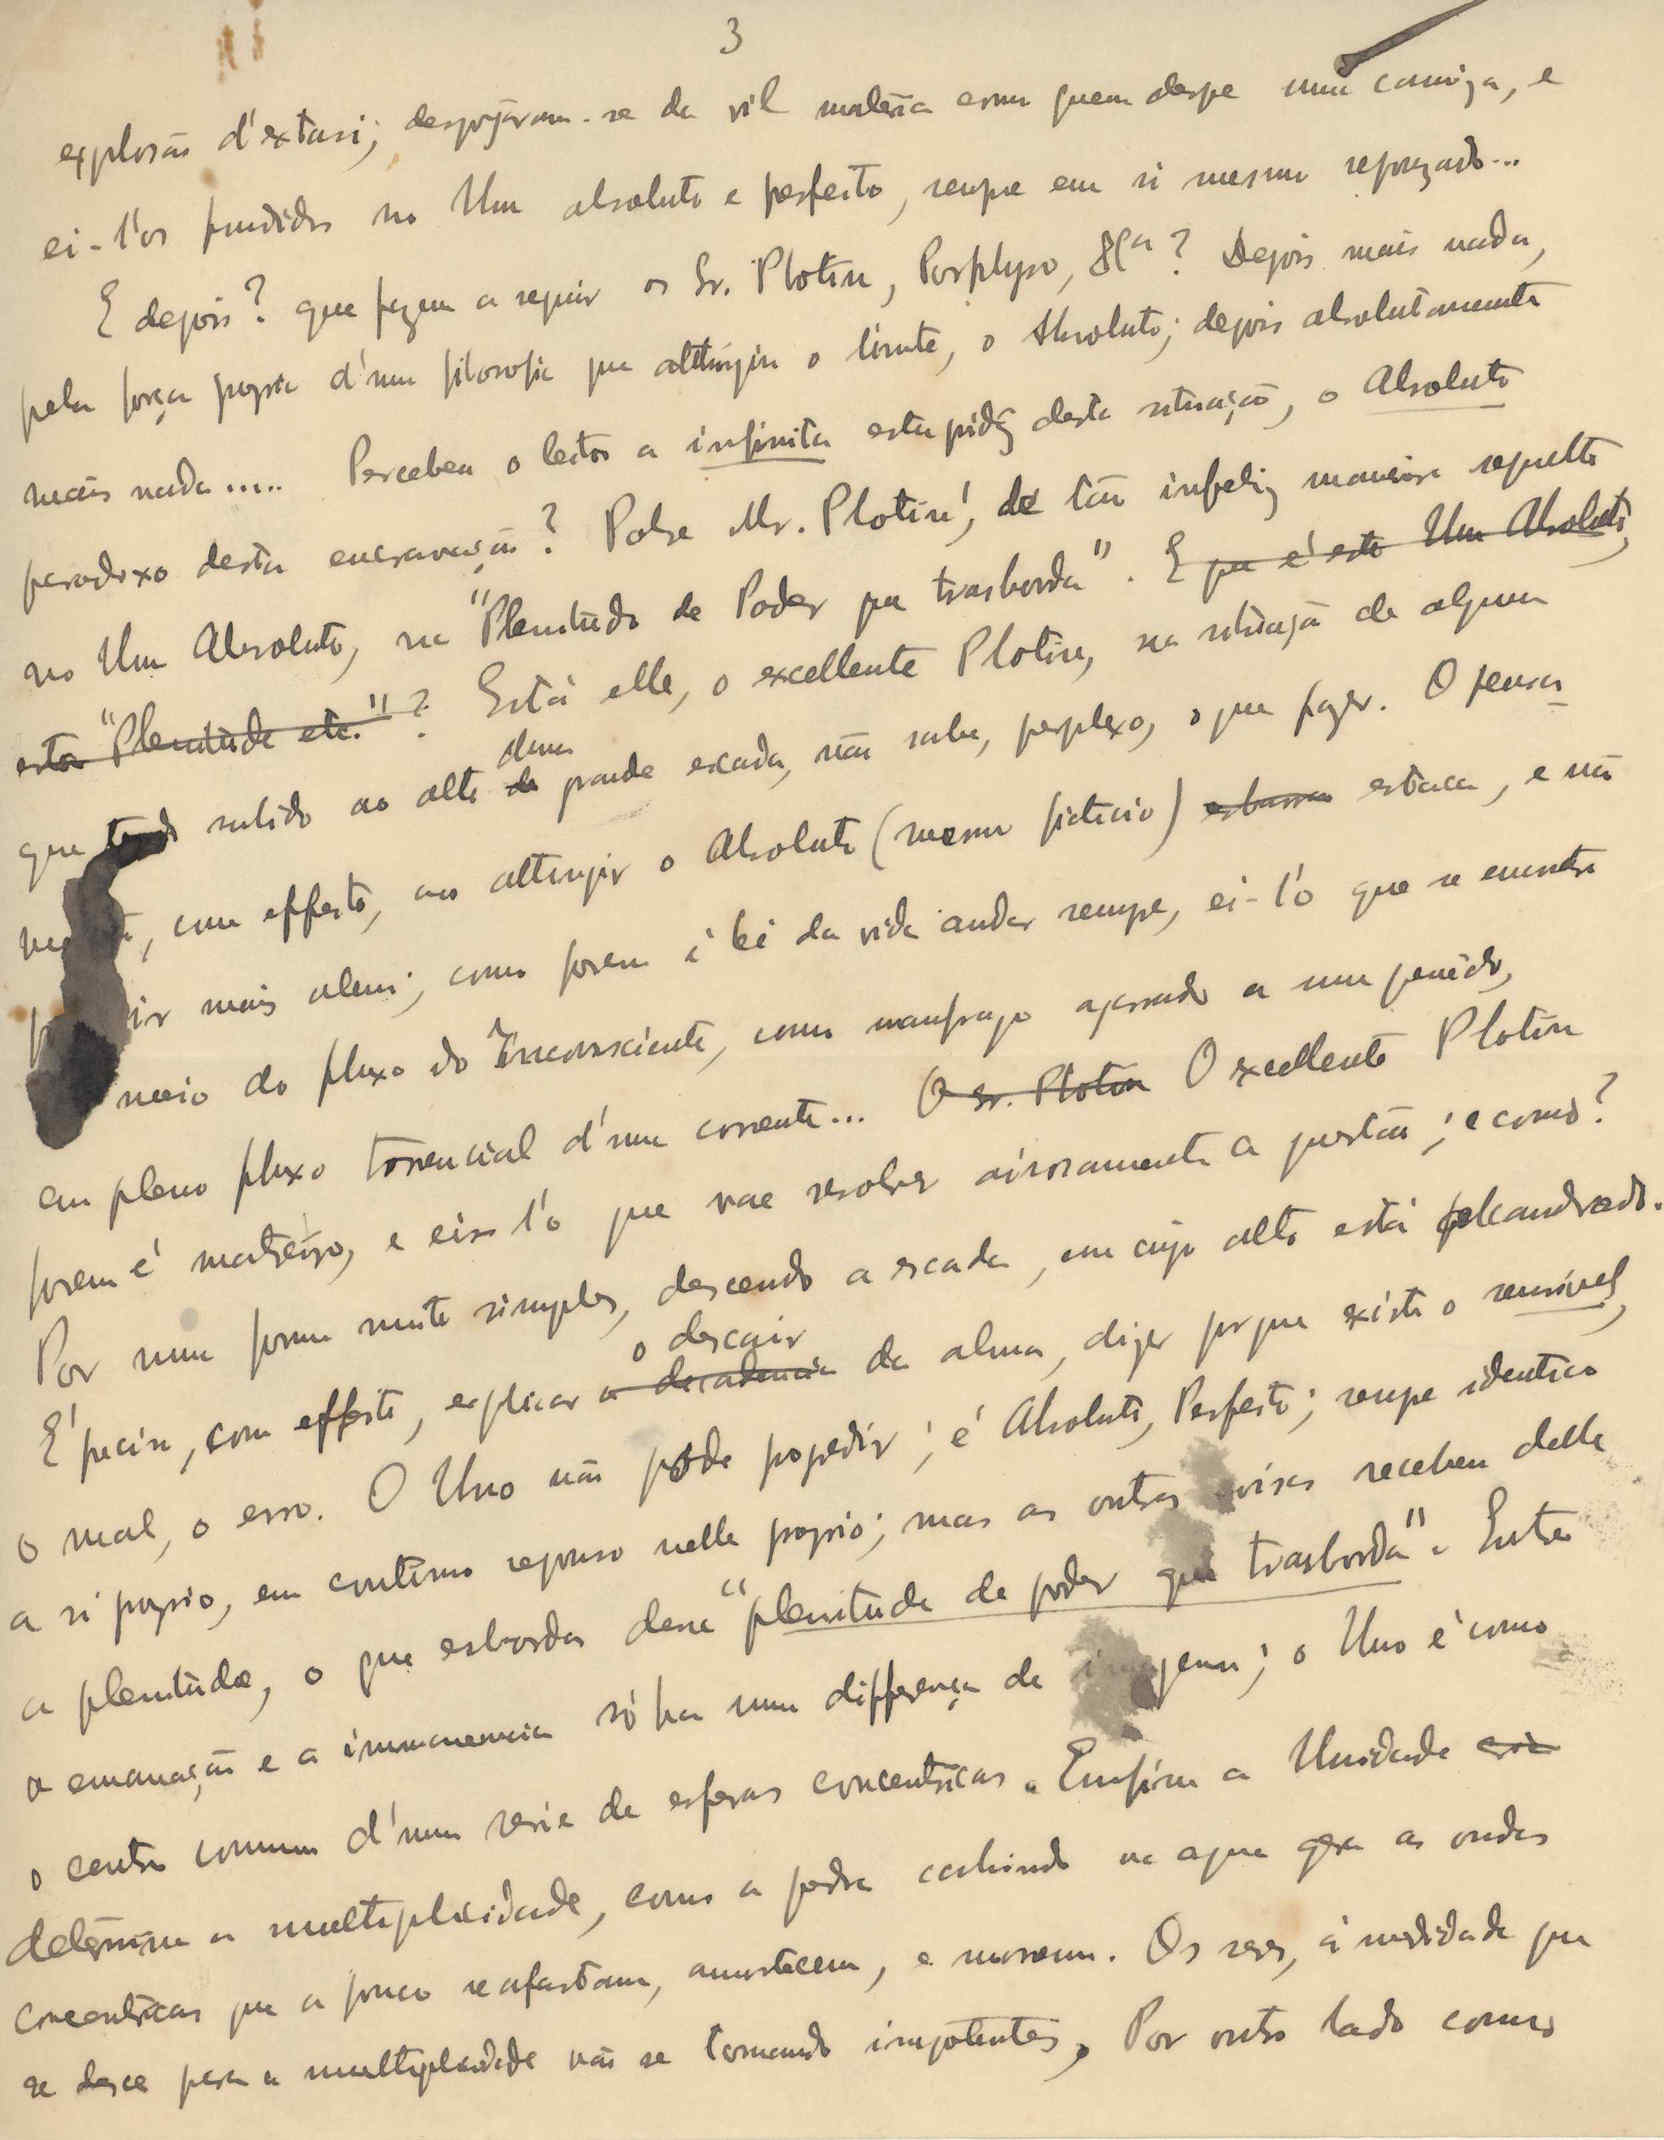 3
explosão d'extasi; despojaram-se da vil materia como quem despe uma camiza, e
ei-l'os fundidos no Um absoluto e perfeito, sempre em si mesmo repouzado...
E depois? que fazem a seguir os Sr. Plotin, Porphyro, &ca? Depois mais nada,
pela força propria d'uma filosofia que attingiu o limite, o Absoluto; depois absolutamente
mais nada..... Percebeu o leitor a infinita estupidez desta situação, o Absoluto
paradoxo desta encravação? Pobre Mr. Plotin!, de tão infeliz maneira sepulto
no Um Absoluto, na "Plenitude de Poder que trasborda". E que é este Um Absoluto,
esta "Plenitude etc."? Está elle, o excellente Plotin, na situação de alguem
duma
que tendo subido ao alto da grande escada, não sabe, perplexo, o que fazer. O pensa-
, com effeito, ao attingir o Absoluto (mesmo ficticio) esbarra estaca, e não
ir mais alem; como porem é lei da vida andar sempre, ei-l'o que se encontra
meio do fluxo do Inconsciente, como naufrago agarrado a um penedo,
em pleno fluxo torrencial d'uma corrente... O Sr. Plotin O excellente Plotin
porem é matreiro, e eis l'o que vae resolver airosamente a questão; e como?
Por uma forma muito simples, descendo a escada, em cujo alto está pelcandrado.
o descair
É preciso, com effeito, explicar a decadencia da alma, dizer porque existe o sensivel,
o mal, o erro. O Uno não pode progredir; é Absoluto, Perfeito; sempre identico
a si proprio, em continuo repouso nelle proprio; mas as outras coisas recebem delle
a plenitude, o que esborda dessa "plenitude de poder que trasborda". Entre
a emanação e a immanencia só ha uma differença de imagem; o Uno é como
o centro comum d'uma serie de esferas concentricas. Emfim a Unidade
determina a multiplicidade, como a pedra cahindo na agua gera as ondas
concentricas que a pouco se afastam, amortecem, e morrem. Os seres, á medida que
se desce para a multiplicidade vão se tornando impotentes. Por outro lado como